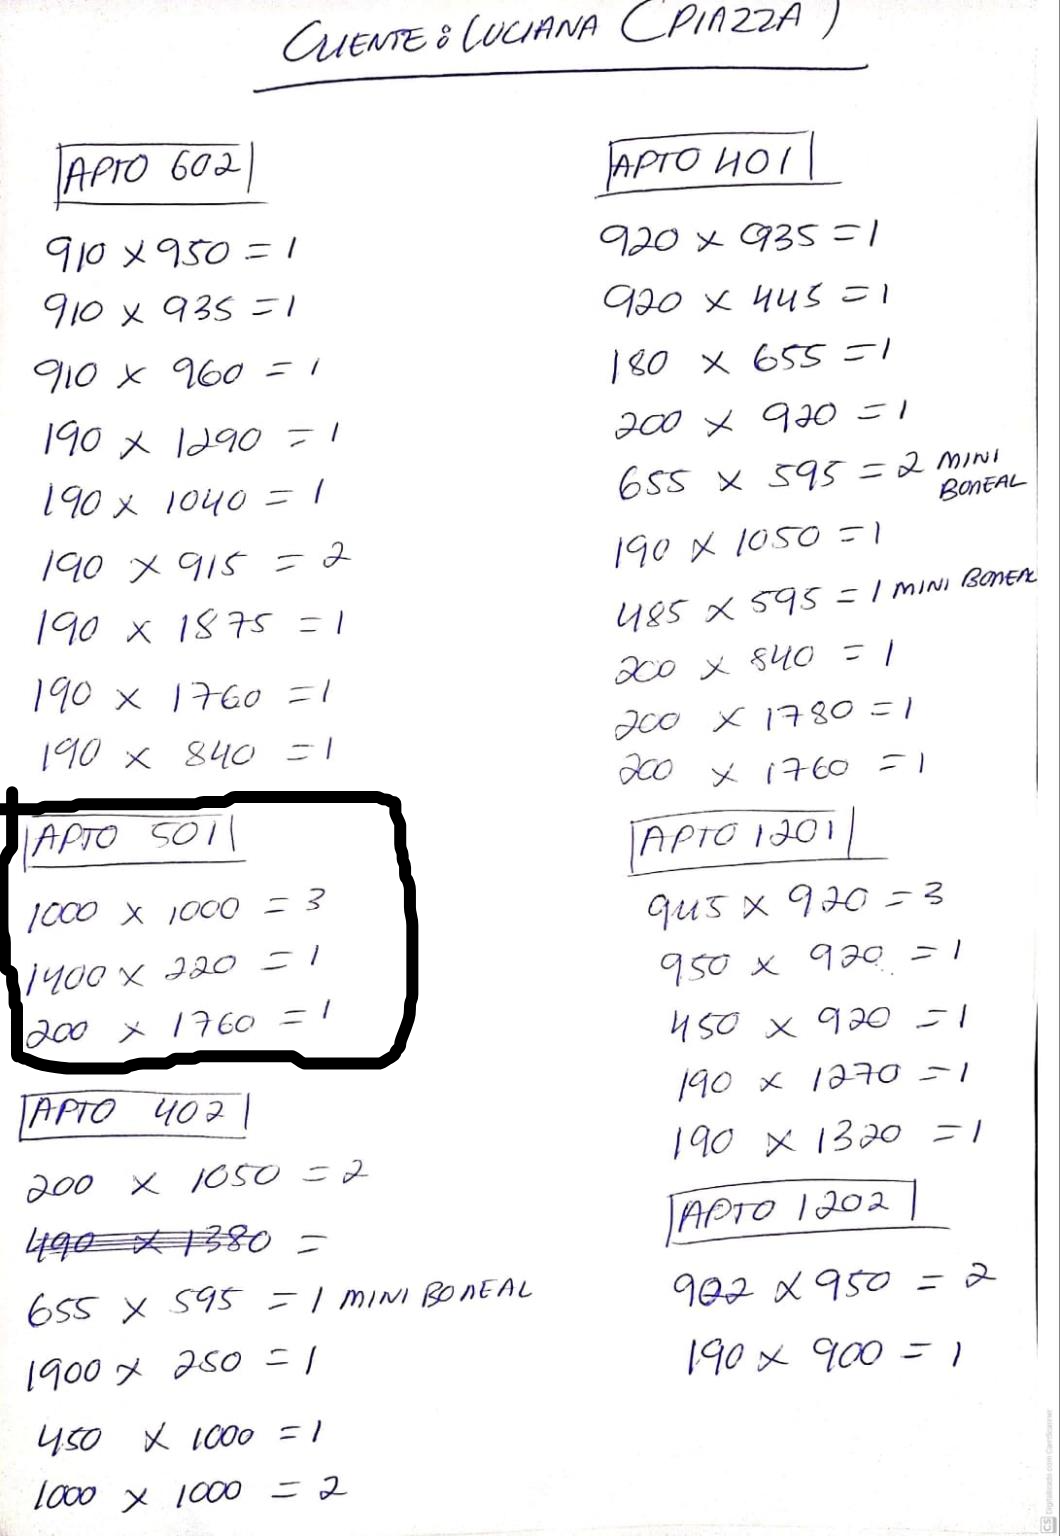 CLIENTE: LUCIANA (PIAZZA)
APTO 602
910 x 950 = 1
910 x 935 = 1
910 x 960 = 1
190 x 1290 = 1
190 x 1040 = 1
190 x 915 = 2
190 x 1875 = 1
190 x 1760 = 1
190 x 840 = 1
APTO 501
1000 x 1000 = 3
1400 x 220 = 1
200 x 1760 = 1
APTO 402
200 x 1050 = 2
490 x 1380 =
655 x 595 = 1 MINI BOREAL
1900 x 250 = 1
450 x 1000 = 1
1000 x 1000 = 2
APTO 401
920 x 935 = 1
920 x 445 = 1
180 x 655 = 1
200 x 920 = 1
655 x 595 = 2 MINI
BOREAL
190 x 1050 = 1
485 x 595 = 1 MINI BOREAL
200 x 840 = 1
200 x 1780 = 1
200 x 1760 = 1
APTO 1201
945 x 920 = 3
950 x 920 = 1
450 x 920 = 1
190 x 1270 = 1
190 x 1320 = 1
APTO 1202
922 x 950 = 2
190 x 900 = 1
CS Digitalizado com CamScanner